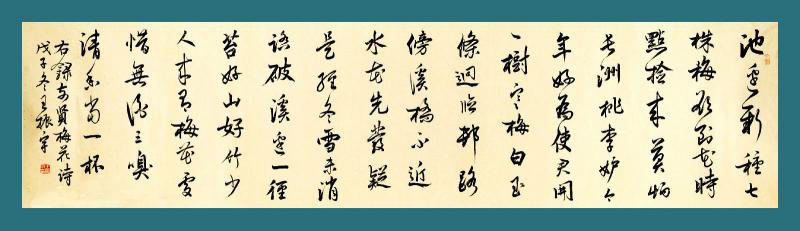 池邊新種七
株梅欲到花時
點檢來莫怕
長洲桃李妒今
年好為使君開
一樹寒梅白玉
條迥臨邨路
傍溪橋不近
水花先發疑
是經冬雪未消
踏破溪邊一徑
苔好山好竹少
人來有梅花處
惜無酒三嗅
清香當一杯
右錄前賢梅花詩
戊子冬王振宇